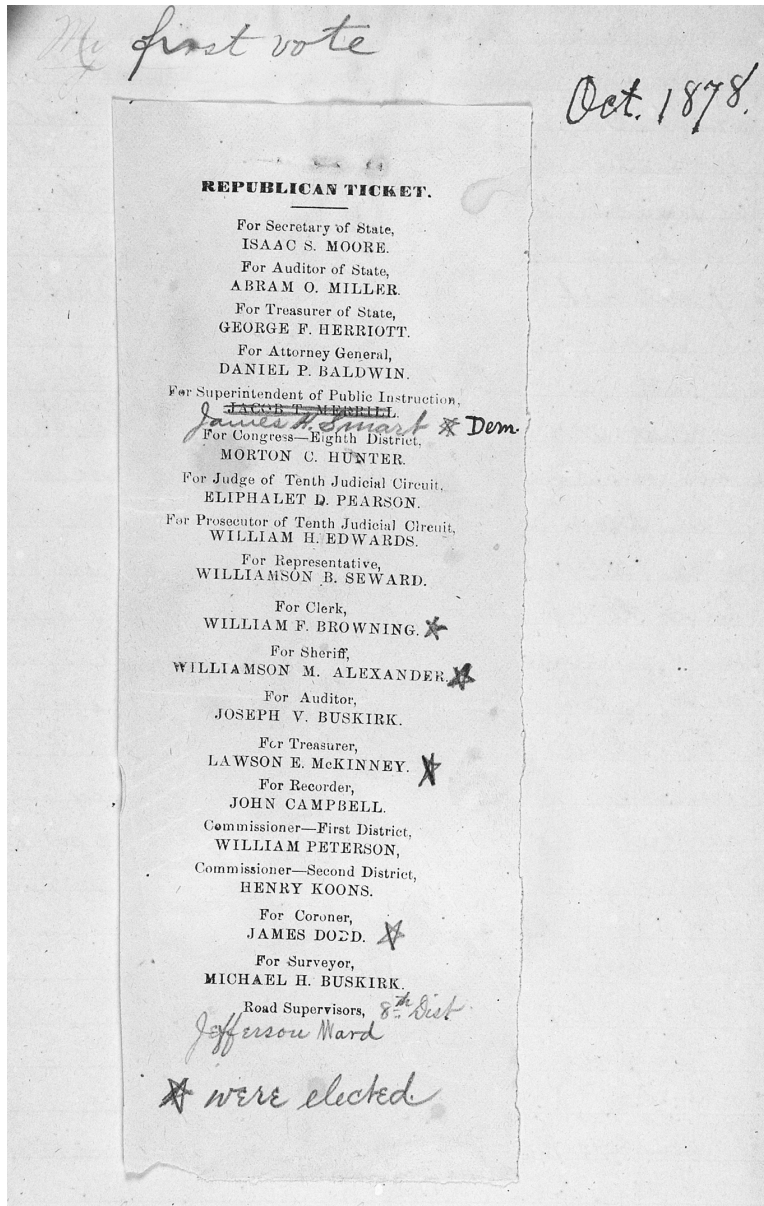 My first vote
Oct. 1878.
REPUBLICAN TICKET.
For Secretary of State,
ISAAC S. MOORE.
For Auditor of State,
ABRAM O. MILLER.
For Treasurer of State,
GEORGE F. HERRIOTT.
For Attorney General,
DANIEL P. BALDWIN.
For Superintendent of Public Instruction,
JACOB T. MERRILL.
James H. Smart ☆ Dem.
For Congress—Eighth District,
MORTON C. HUNTER.
For Judge of Tenth Judicial Circuit,
ELIPHALET D. PEARSON.
For Prosecutor of Tenth Judicial Circuit,
WILLIAM H. EDWARDS.
For Representative,
WILLIAMSON B. SEWARD.
For Clerk,
WILLIAM F. BROWNING. ☆
For Sheriff,
WILLIAMSON M. ALEXANDER. ☆
For Auditor,
JOSEPH V. BUSKIRK.
For Treasurer,
LAWSON E. McKINNEY. ☆
For Recorder,
JOHN CAMPBELL.
Commissioner—First District,
WILLIAM PETERSON,
Commissioner—Second District,
HENRY KOONS.
For Coroner,
JAMES DODD. ☆
For Surveyor,
MICHAEL H. BUSKIRK.
Road Supervisors, 8th Dist
Jefferson Ward
☆ were elected.